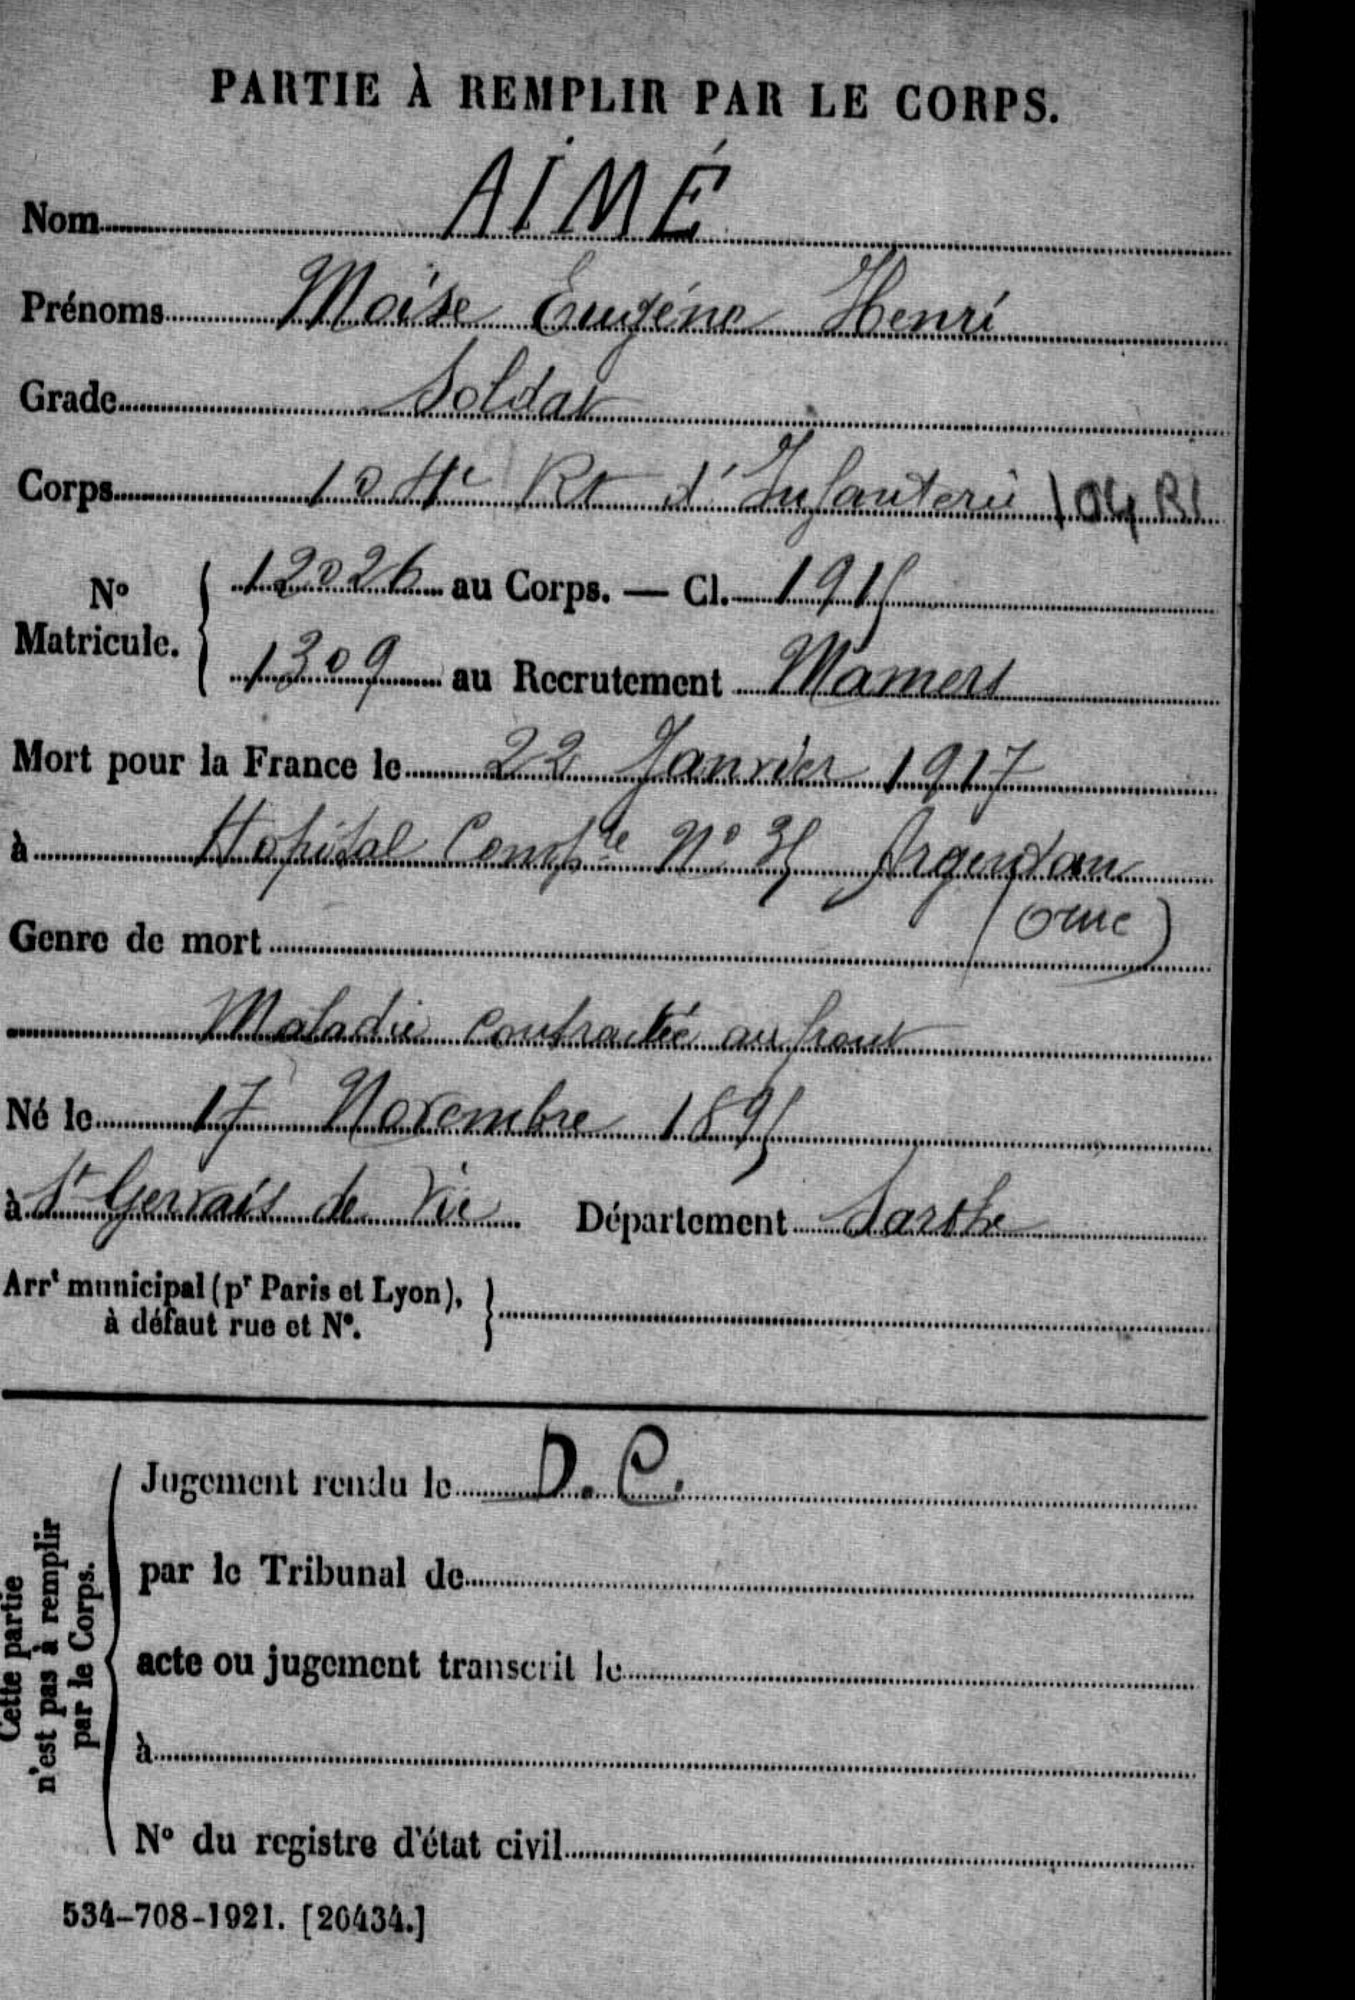 PARTIE À REMPLIR PAR LE CORPS.
Nom AIMÉ
Prénoms Moïse Eugéne Henri
Grade Soldat
Corps 104e Rt d'Infanterie 104 RI
No Matricule. { 12026 au Corps. — Cl. 1915
1309 au Recrutement Mamers
Mort pour la France le 22 Janvier 1917
à Hopital Compre No 35 Argentan
(Orne)
Genre de mort
Maladie contractée au front
Né le 17 Novembre 1895
à St Gervais de Vic Département Sarthe
Arrt municipal (pr Paris et Lyon), }
à défaut rue et No.
Cette partie
n'est pas à remplir
par le Corps.
Jugement rendu le D. C.
par le Tribunal de
acte ou jugement transcrit le
à
No du registre d'état civil
534-708-1921. [26434.]